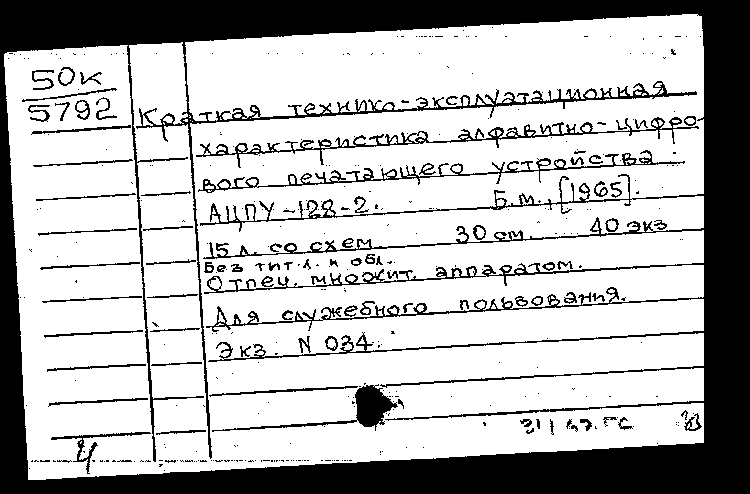 50к
5792
Краткая технико-эксплуатационная
характеристика алфавитно-цифро-
вого печатающего устройства :
АЦПУ-128-2. Б.м., [1965].
15 л. со схем. 30 см. 40 экз
Без тит.л. и обл.
Отпеч. множит. аппаратом.
Для служебного пользования.
Экз. N 034.